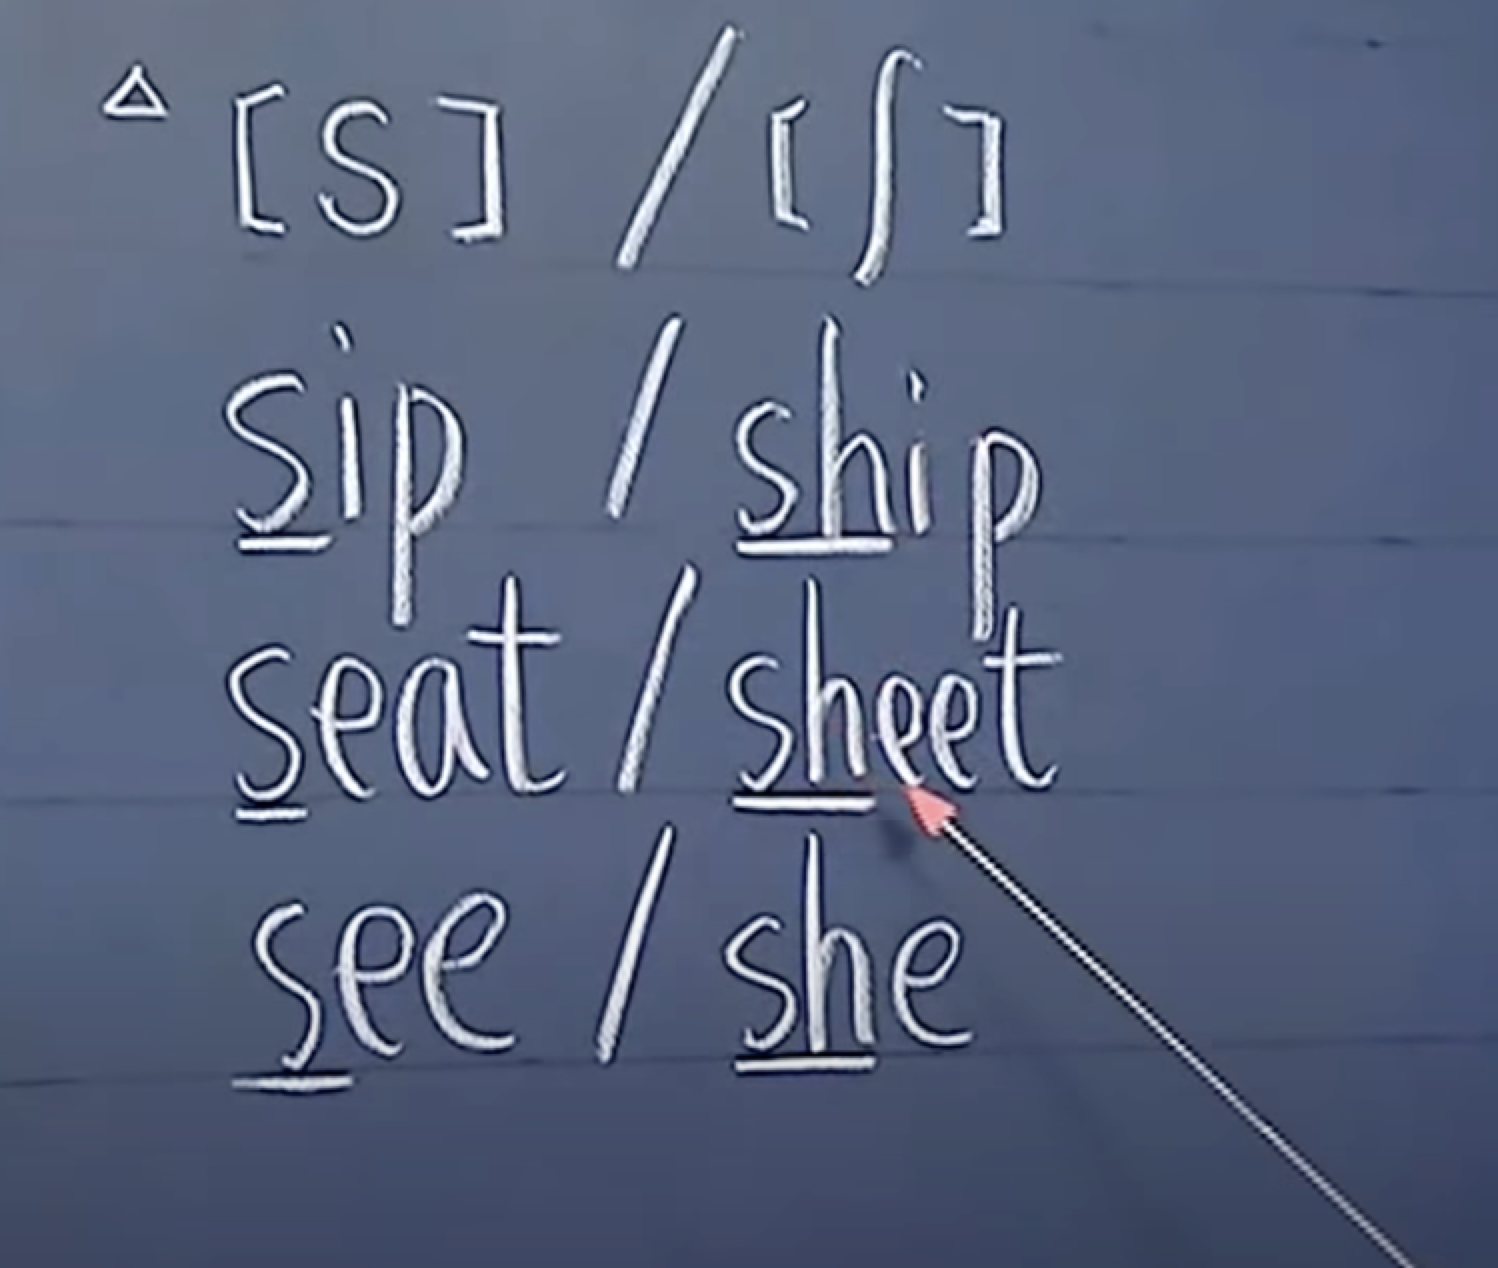 △ [s] / [ʃ]
sip / ship
seat / sheet
see / she